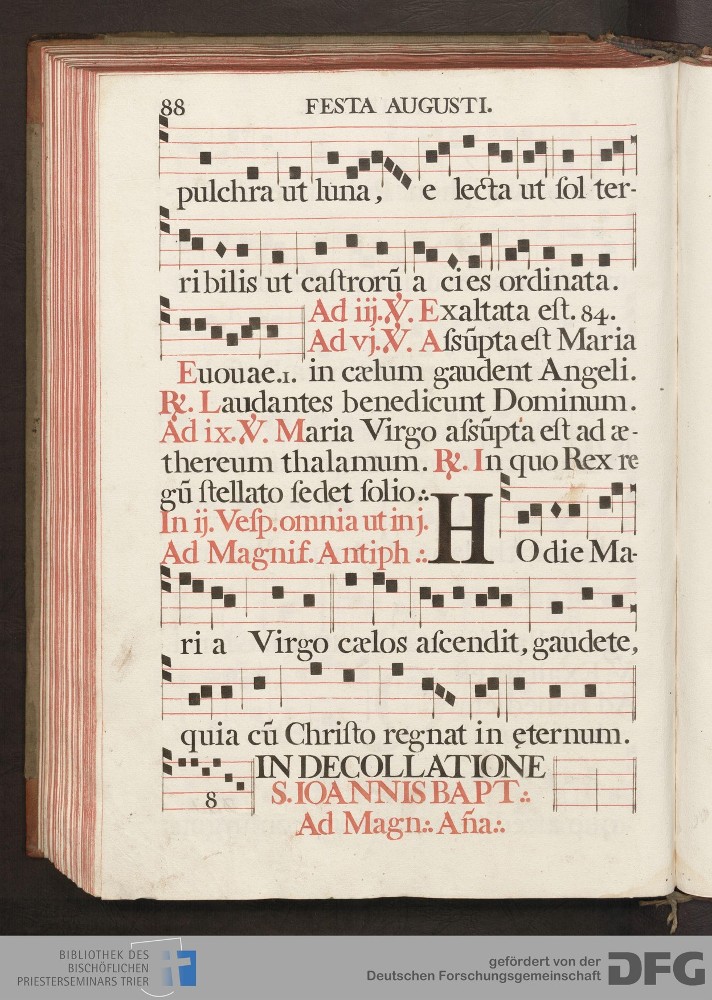 88 FESTA AUGUSTI.
pulchra ut luna, e lecta ut ſol ter-
ribilis ut caſtrorū a cies ordinata.
Ad iij. ℣. Exaltata eſt. 84.
Ad vj. ℣. Aſsūpta eſt Maria
Euouae.1. in cælum gaudent Angeli.
℟. Laudantes benedicunt Dominum.
Ad ix. ℣. Maria Virgo aſsūpta eſt ad æ-
thereum thalamum. ℟. In quo Rex re
gū ſtellato ſedet ſolio.:.
In ij. Veſp. omnia ut in j.
Ad Magnif. Antiph.:. HOdie Ma-
ri a Virgo cælos aſcendit, gaudete,
quia cū Chriſto regnat in ęternum.
IN DECOLLATIONE
8 S. IOANNIS BAPT.:.
Ad Magn.:. Aña.:.
BIBLIOTHEK DES
BISCHÖFLICHEN
PRIESTERSEMINARS TRIER
gefördert von der
Deutschen Forschungsgemeinschaft DFG